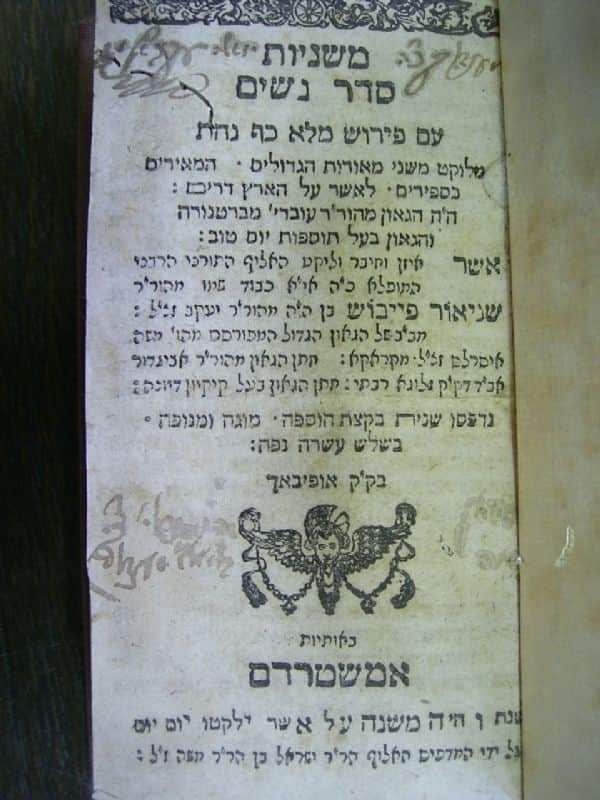 משניות
סדר נשים
עם פירוש מלא כף נחת
מלוקט משני מאורות הגדולים · המאירים
כספירים · לאשר על הארץ דרים :
ה"ה הגאון מהור"ר עובדי' מברטנורה
והגאון בעל תוספות יום טוב :
אשר איזן וחיבר וליקט האלוף התורני הרבני
המופלא כ"ה א"א כבוד שמו מהור"ר
שניאור פייבוש בן ה"ה מהור"ר יעקב ז"ל :
הגאון הגדול המפורסם מהו' משה
איסרלש ז"ל מקראקא : חתן הגאון מהור"ר אביגדור
אב"ד דק"ק רבתי : חתן הגאון בעל קיקיון דיונה :
נדפסו שנית בקצת הוספה · מוגה ומנופה ·
בשלש עשרה נפה :
בק"ק אופיבאך
באותיות
אמשטרדם
שנת והיה משנה על אשר ילקטו יום יום
על ידי המדפיס האלוף הר"ר ישראל בן הר"ר משה ז"ל :